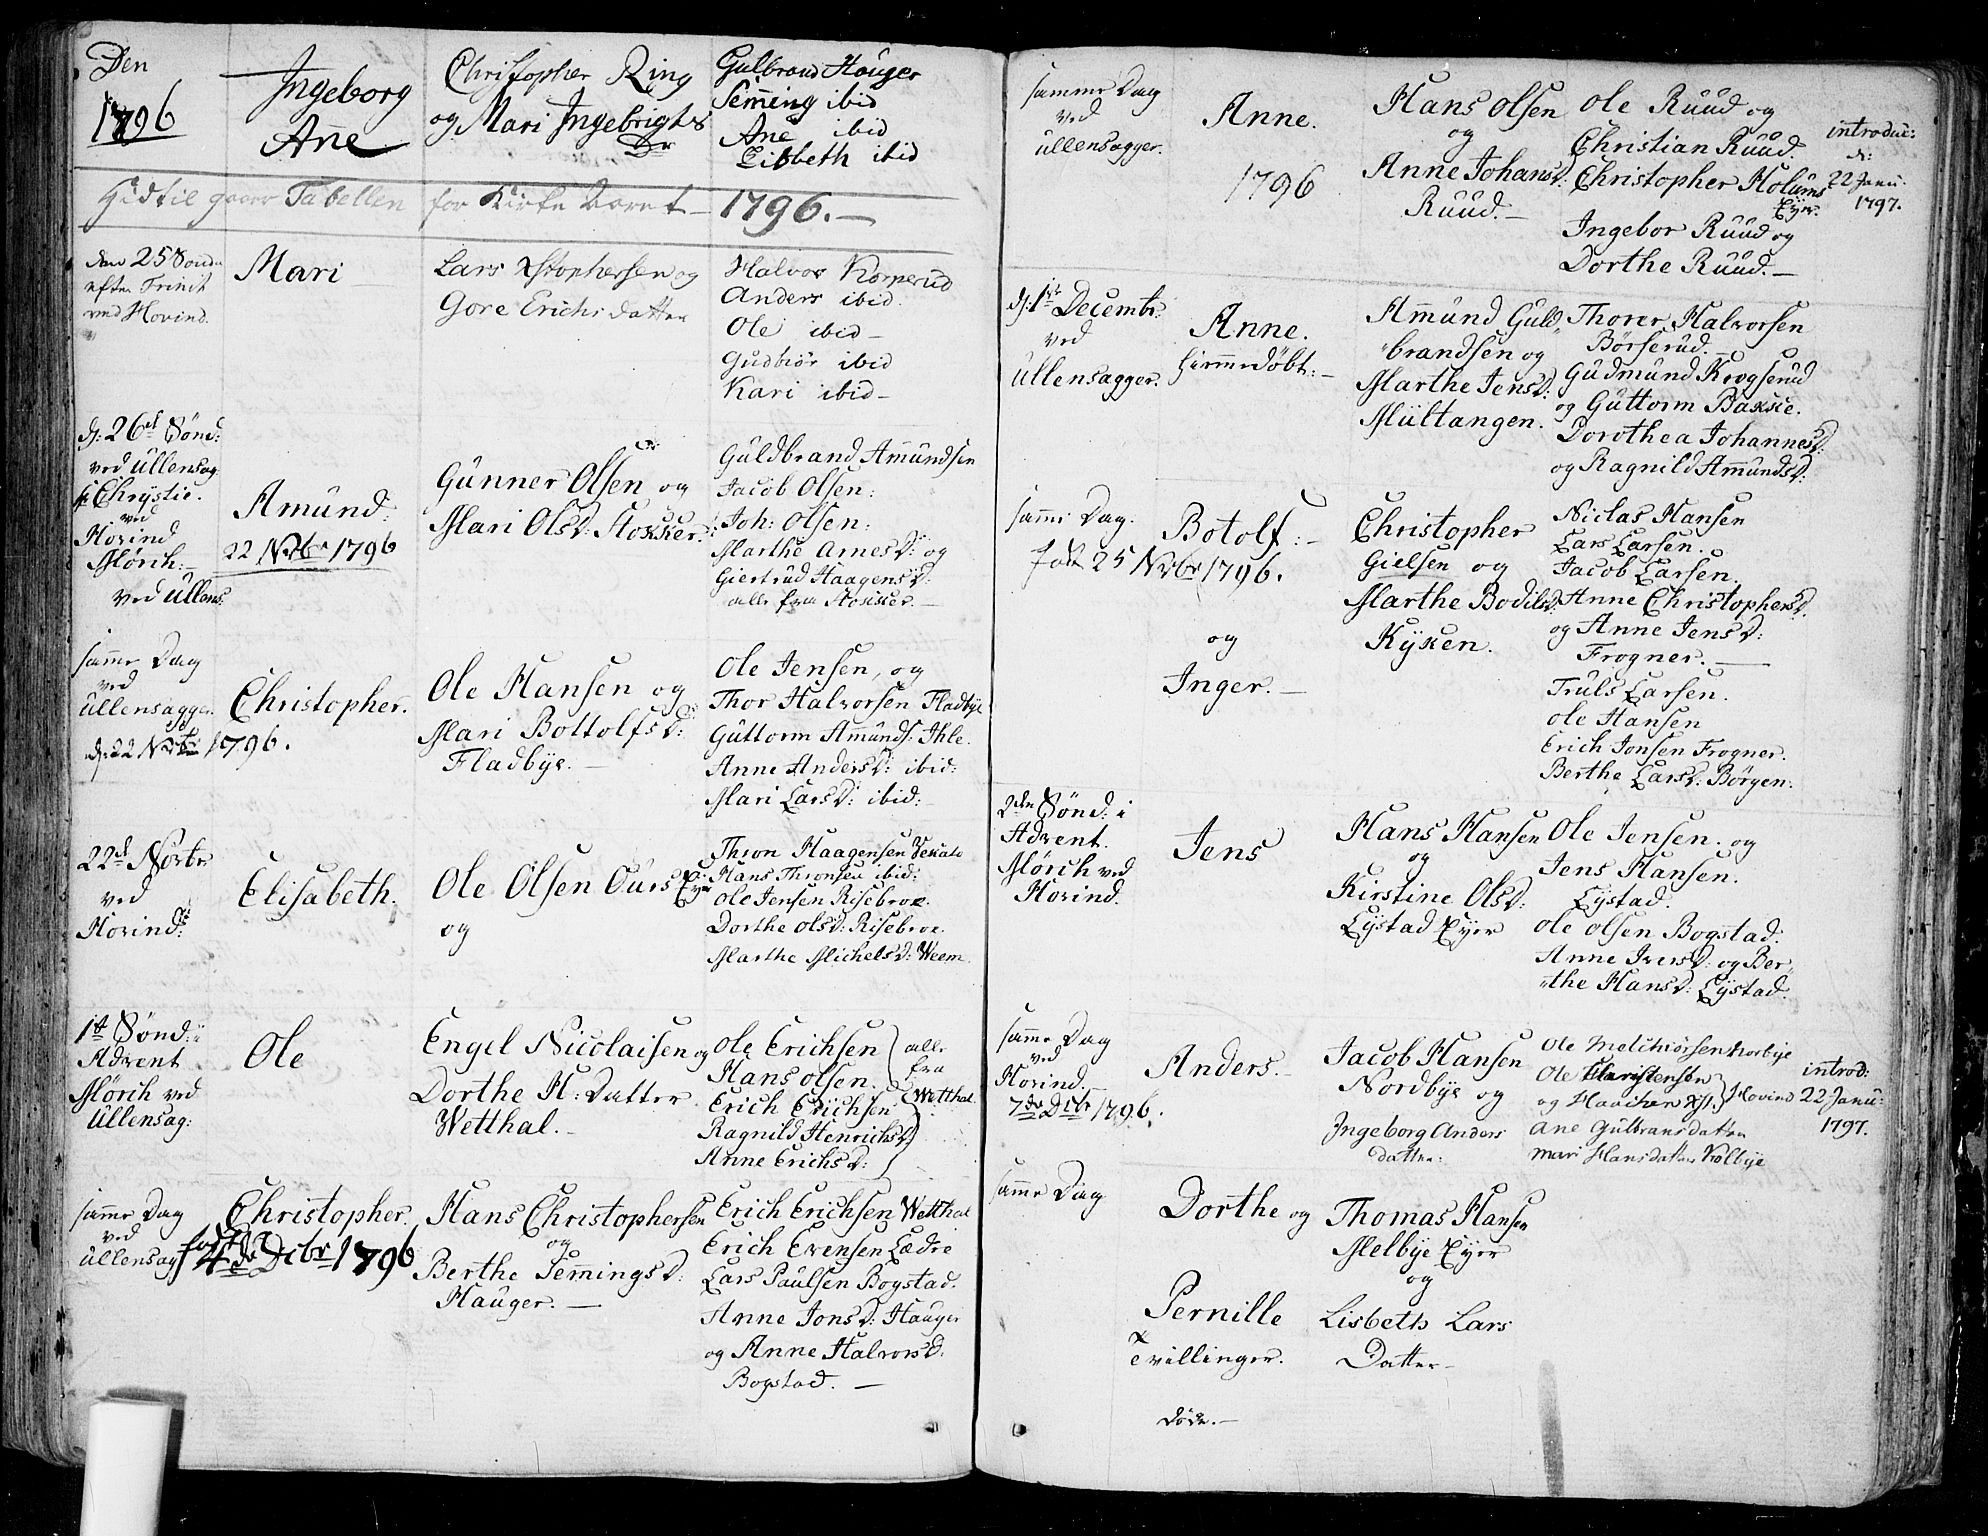 Den
1796
Ingeborg
Ane
Christopher Ring
og Mari Ingebrigts
Dr
Gulbrand Hauger
Semming ibid
Ane ibid
Lisbeth ibid
Hidtil gaaer Tabellen for Kirke Aaret 1796.—
den 25 Sønd
efter Trinit
ved Hovind.
Mari
Lars Xstophersen og
Gore Erichsdatter
Halvor Kopperud
Anders ibid.
Ole ibid—
Gudbiør ibid
Kari ibid—
d: 26d Sønd:
ved Ullensag
Chrystie.
ved
Hovind
Mørch:—
ved Ullens:
Amund:
22 Novbr 1796
Gunner Olsen og
Mari Olsd: Stokker.
Guldbrand Amundsen
Jacob Olsen:
Joh: Olsen:
Marthe Arnesd: og
Giertrud Haagensd:
alle fra Stokker.—
samme Dag
ved
Ullensagger.
d: 22 Novbr 1796.
Christopher.
Ole Hansen og
Mari Bottolfsd:
Fladbye.—
Ole Jensen, og
Thor Halvorsen Fladbye
Guttorm Amunds: Ihle.
Anne Andersd: ibid:
Mari Larsd: ibid:
22d Novbr
ved
Hovind:
Elisabeth.
Ole Olsen Ours Eyer
og
Thron Haagensen
Hans Thronsen ibid:
Ole Jensen Risebroe.
Dorthe Olsd: Risebroe.
Marthe Michelsd: Weem.
1st Sønd: i
Advent
Mørch ved
Ullensag:
Ole
Engel Nicolaisen og
Dorthe H: Datter
Wetthal.—
Ole Erichsen
Hans Olsen.
Erich Erichsen
Ragnild Henrichsd
Anne Erichsd:
alle
fra
Wetthal.
samme Dag
ved
Ullensag
Christopher.
født 4de Decbr 1796
Hans Christophersen
og
Berthe Semmingsd:
Hauger.—
Erich Erichsen Wetthal
Erich Evensen Lædre
Lars Paulsen Bogstad.
Anne Jonsd: Hauger
og Anne Halvorsd:
Bogstad.—
samme Dag
ved
Ullensagger.
Anne.
1796
Hans Olsen
og
Anne Johansd:
Ruud.—
Ole Ruud og
Christian Ruud.
Christopher Holums
Eyer.
Ingebor Ruud og
Dorthe Ruud.—
introduc:
d:
22 Janu:
1797.
d: 1ste Decembr:
ved
Ullensagger.
Anne.
hiemmedøbt:—
Amund Guld„
„brandsen og
Marthe Jensd:
Multangen.
Thorer Halvorsen
Børserud.
Gudmund Krogserud
og Guttorm Bakkie.
Dorothea Johannesd:
og Ragnild Amundsd:
samme Dag.
Botolf:—
fød 25 Novbr 1796.
og
Inger.—
Christopher
Gielsen og
Marthe Bodilsd:
Kyken.
Niclas Hansen
Lars Larsen.
Jacob Larsen.
Anne Christophersd.
og Anne Jensd:
Frogner.—
Truls Larsen.
Ole Hansen
Erich Jonsen Frogner.
Berthe Larsd: Børgen:
2den Sønd: i
Advent.
Mørch ved
Hovind.
Jens
Hans Hansen
og
Kirstine Olsd:
Lystad Eyer
Ole Jensen. og
Jens Hansen.
Lystad.
Ole Olsen Bogstad.
Anne Iversd: og Ber„
„the Hansd: Lystad.
samme Dag
ved
Hovind.
7de Decbr 1796.
Anders.—
Jacob Hansen
Nordbye og
Ingeborg Anders
datter:
Ole Melchiorsen Norbye
Ole Christensen
og Xst: Hovind
Ane Gulbransdatter
Mari Hansdatter Kolbye
introd:
22 Janu:
1797.
samme Dag
Dorthe og
Pernille
Tvillinger.
døde.—
Thomas Hansen
Melbye Eyer
og
Lisbeth Lars
Datter—